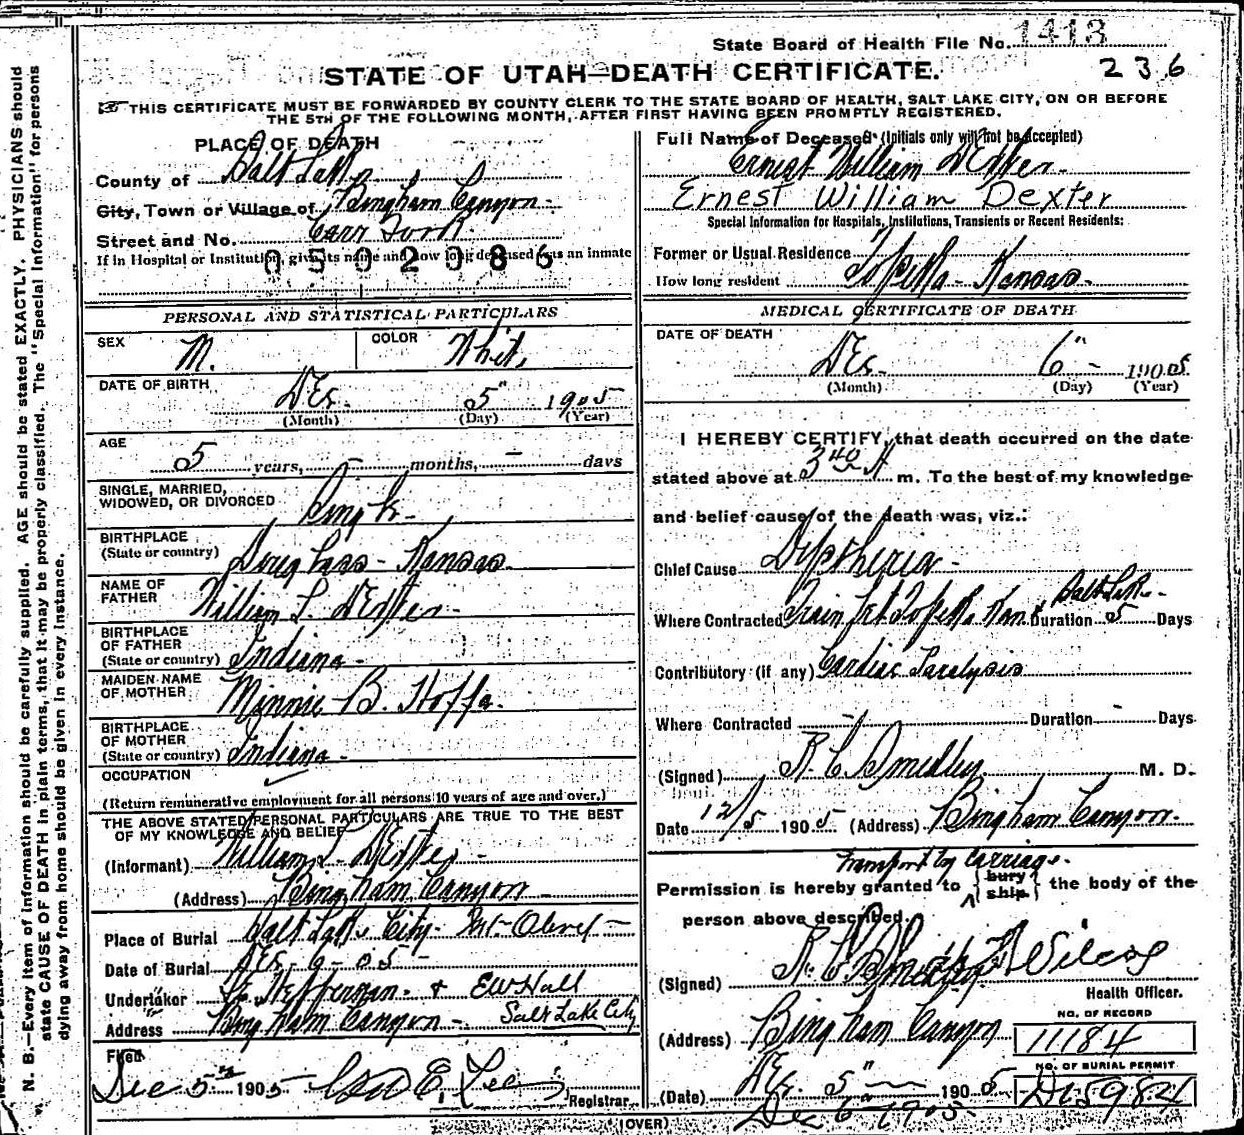 State Board of Health File No. 1413
236
STATE OF UTAH—DEATH CERTIFICATE.
THIS CERTIFICATE MUST BE FORWARDED BY COUNTY CLERK TO THE STATE BOARD OF HEALTH, SALT LAKE CITY, ON OR BEFORE
THE 5TH OF THE FOLLOWING MONTH, AFTER FIRST HAVING BEEN PROMPTLY REGISTERED.
N. B.—Every item of information should be carefully supplied. AGE should be stated EXACTLY. PHYSICIANS should
state CAUSE OF DEATH in plain terms, that it may be properly classified. The "Special Information" for persons
dying away from home should be given in every instance.
PLACE OF DEATH
County of Salt Lake
City, Town or Village of Bingham Canyon
Street and No. Carr Fork
If in Hospital or Institution, give its name and how long deceased was an inmate
0502086
PERSONAL AND STATISTICAL PARTICULARS
SEX M. COLOR White
DATE OF BIRTH Dec. 5" 1905
(Month) (Day) (Year)
AGE 5 years, — months, — days
SINGLE, MARRIED,
WIDOWED, OR DIVORCED Single
BIRTHPLACE
(State or country) Douglass - Kansas.
NAME OF
FATHER William L. Dexter
BIRTHPLACE
OF FATHER
(State or country) Indiana.
MAIDEN NAME
OF MOTHER Minnie B. Hoffa.
BIRTHPLACE
OF MOTHER
(State or country) Indiana.
OCCUPATION
(Return remunerative employment for all persons 10 years of age and over.)
THE ABOVE STATED PERSONAL PARTICULARS ARE TRUE TO THE BEST
OF MY KNOWLEDGE AND BELIEF
(Informant) William L. Dexter
(Address) Bingham Canyon
Place of Burial Salt Lake City - Mt. Olivet
Date of Burial Dec - 6 - 05
Undertaker Heffernan & EW Hall
Address Bingham Canyon - Salt Lake City
Filed
Dec 5th 1905 Registrar
Full Name of Deceased (Initials only will not be accepted)
Ernest William Dexter
Ernest William Dexter
Special Information for Hospitals, Institutions, Transients or Recent Residents:
Former or Usual Residence
How long resident Topeka - Kansas
MEDICAL CERTIFICATE OF DEATH
DATE OF DEATH
Dec. 6" 1905
(Month) (Day) (Year)
I HEREBY CERTIFY, that death occurred on the date
stated above at 3 40 A m. To the best of my knowledge
and belief cause of the death was, viz.:
Chief Cause Diphtheria
Where Contracted Train bet Topeka Kan & Salt Lake Duration 5 Days
Contributory (if any) Cardiac Paralysis
Where Contracted — Duration — Days
(Signed) R C Smedley M. D.
Date 12/5 1905 (Address) Bingham Canyon.
transport by carriage.
Permission is hereby granted to { bury ship } the body of the
person above described.
(Signed) Wilcox
Health Officer.
(Address) Bingham Canyon
NO. OF RECORD
11184
NO. OF BURIAL PERMIT
(Date) Dec. 5" 1905
Dec 6 1905
(OVER)